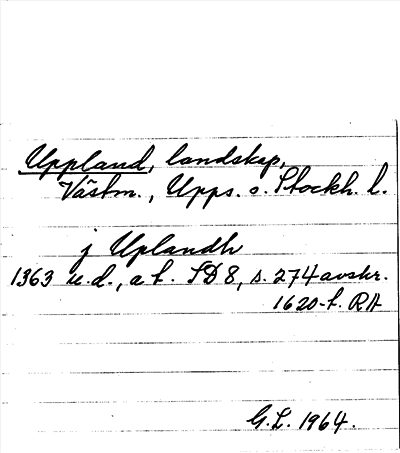 Uppland, landskap,
Västm., Upps. o. Stockh. l.
j Uplandh
1363 u.d., a b. SD 8, s. 274 avskr.
1620-t. RA
G.L. 1964.